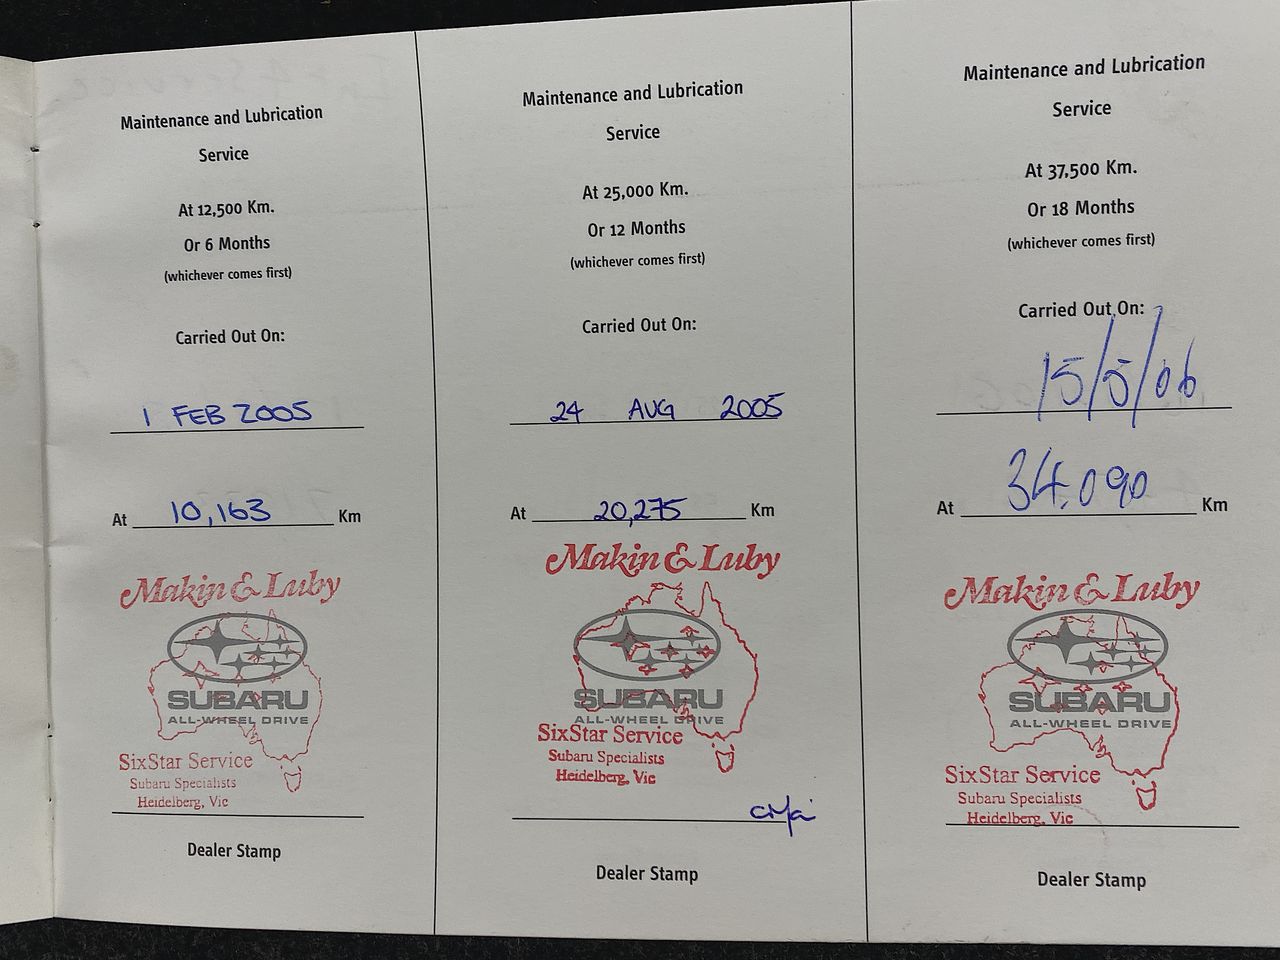 Maintenance and Lubrication
Service
At 12,500 Km.
Or 6 Months
(whichever comes first)
Carried Out On:
1 FEB 2005
At 10,163 Km
Makin & Luby
SUBARU
ALL-WHEEL DRIVE
SixStar Service
Subaru Specialists
Heidelberg, Vic
Dealer Stamp
Maintenance and Lubrication
Service
At 25,000 Km.
Or 12 Months
(whichever comes first)
Carried Out On:
24 AUG 2005
At 20,275 Km
Makin & Luby
SUBARU
ALL-WHEEL DRIVE
SixStar Service
Subaru Specialists
Heidelberg, Vic
Dealer Stamp
Maintenance and Lubrication
Service
At 37,500 Km.
Or 18 Months
(whichever comes first)
Carried Out On:
15/5/06
At 34,090 Km
Makin & Luby
SUBARU
ALL-WHEEL DRIVE
SixStar Service
Subaru Specialists
Heidelberg, Vic
Dealer Stamp